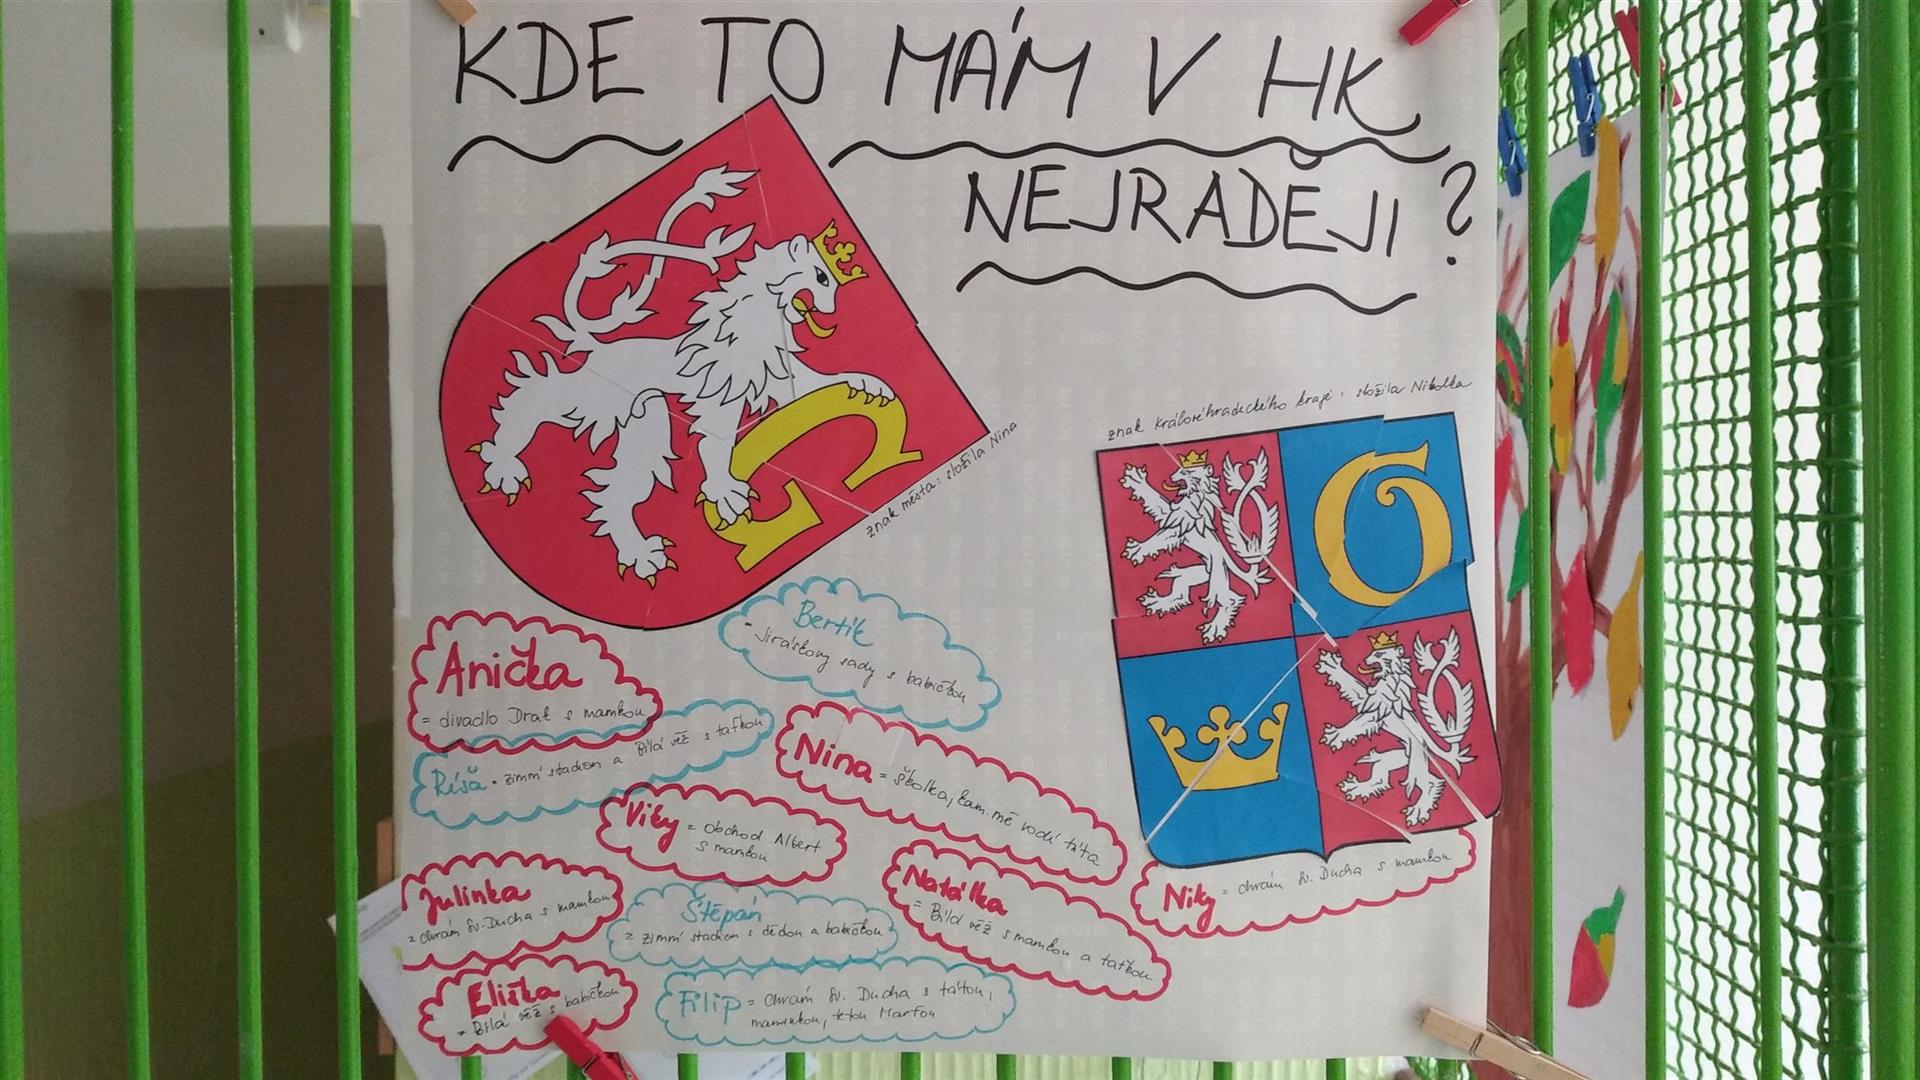 KDE TO MÁM V HK
NEJRADĚJI ?
znak města: složila Nina
znak Královéhradeckého kraje: složila Nikolka
Bertík
= Jiráskovy sady s babičkou
Anička
= divadlo Drak s mamkou
Ríša = zimní stadion a Bílá věž s taťkou
Nina = školka, kam mě vodí táta
Viky = obchod Albert
s mamkou
Julinka
= chrám sv. Ducha s mamkou
Štěpán
= zimní stadion s dědou a babičkou
Natálka
= Bílá věž s mamkou a taťkou
Niky = chrám sv. Ducha s mamkou
Eliška
= Bílá věž s babičkou
Filip = chrám sv. Ducha s tátou,
maminkou, tetou Marťou